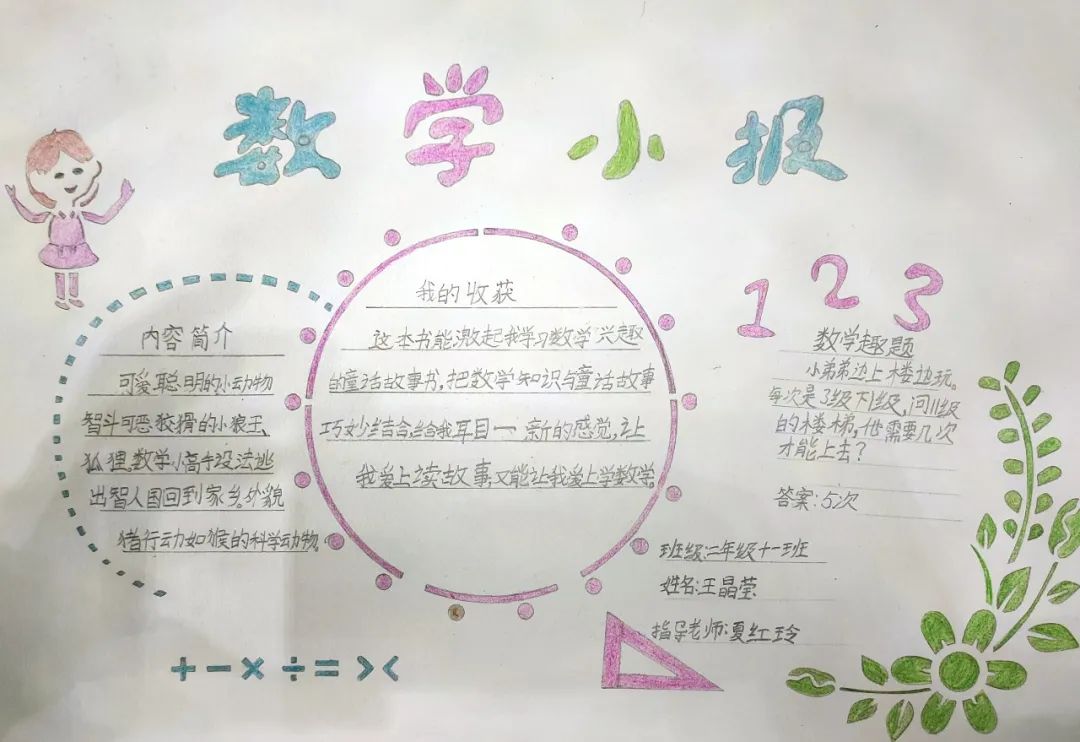 数学小报
内容简介
可爱聪明的小动物
智斗可恶狡猾的小狼王、
狐狸,数学小高手设法逃
出智人国回到家乡。外貌
猪行动如猴的科学动物。
我的收获
这本书能激起我学习数学兴趣
的童话故事书,把数学知识与童话故事
巧妙结合,给我耳目一新的感觉,让
我爱上读故事,又能让我爱上学数学
1 2 3
数学趣题
小弟弟边上楼边玩。
每次是3级下1级,问11级
的楼梯,他需要几次
才能上去?
答案:5次
班级:二年级十一班
姓名:王晶莹
指导老师:夏红玲
+ - × ÷ = > <